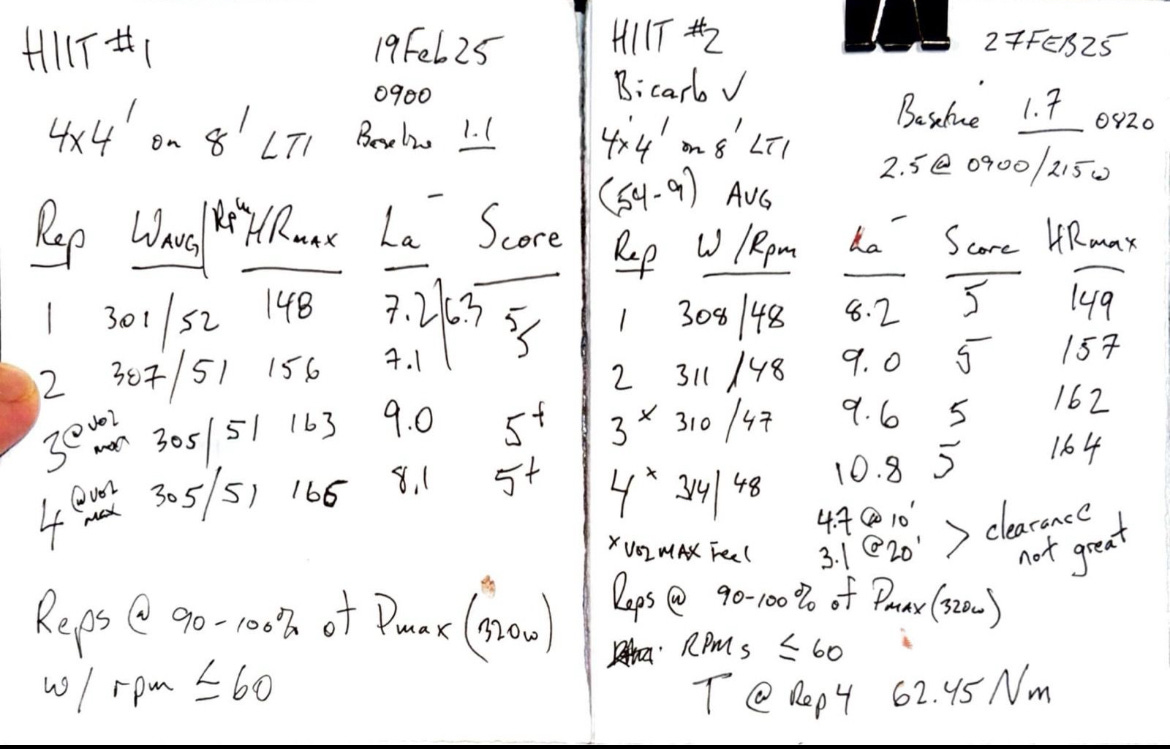 HIIT #1 19Feb25
0900
4x4' on 8' LTI Baseline 1.1
Rep WAVG/Rpm HRMAX La⁻ Score
1 301/52 148 7.2/6.3 5
2 307/51 156 7.1 5
3 @ VO2 max 305/51 163 9.0 5+
4 @ VO2 MAX 305/51 166 8.1 5+
Reps @ 90-100% of Pmax (320w)
w/ rpm ≤60
HIIT #2 27FEB25
Bicarb ✓
Baseline 1.7 0820
4x4' on 8' LTI
2.5 @ 0900/215w
(54-9) AVG
Rep W/Rpm La⁻ Score HRmax
1 308/48 8.2 5 149
2 311/48 9.0 5 157
3 x 310/47 9.6 5 162
4 x 314/48 10.8 5 164
4.7 @ 10'
3.1 @ 20' > clearance not great
x VO2 MAX Feel
Reps @ 90-100% of PMAX (320w)
RPMs ≤ 60
T @ Rep 4 62.45 Nm